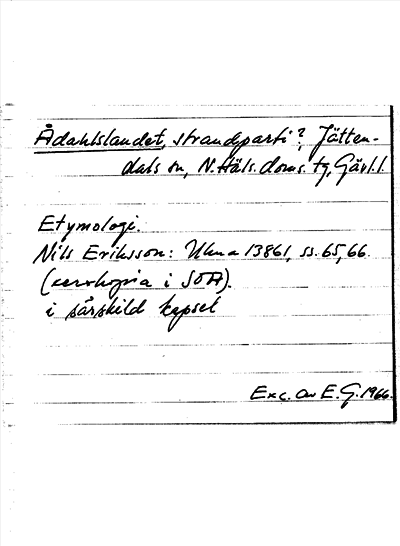 Ådahlslandet, strandparti?, Jätten-
dals sn, N. Häls. doms. tg, Gävl. l.
Etymologi.
Nils Eriksson: Ulma 13861, ss. 65, 66.
(xeroxkopia i SOA).
i särskild kapsel
Exc. av E. G. 1966.